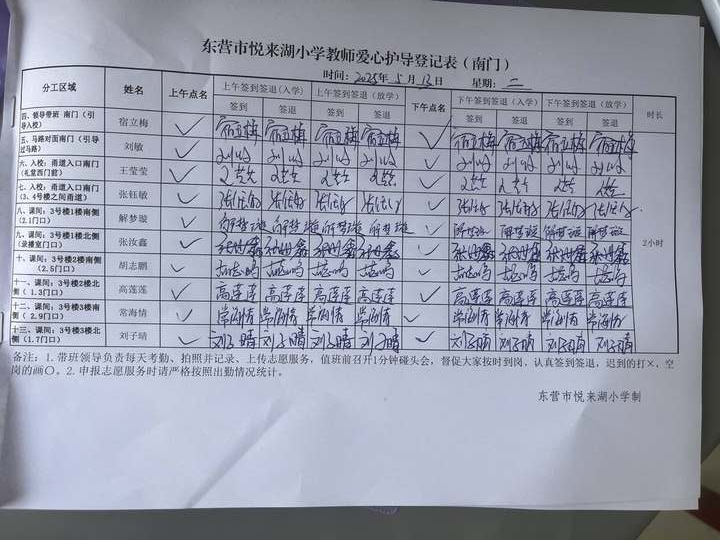 东营市悦来湖小学教师爱心护导登记表（南门）
时间：2025年 5月 13日 星期：二
分工区域 姓名 上午点名 上午签到签退(入学) 上午签到签退（放学） 下午点名 下午签到签退（入学） 下午签到签退（放学） 时长
签到 签退 签到 签退 签到 签退 签到 签退
四、领导带班 南门（引导入校） 宿立梅 ✓ 宿立梅 宿立梅 宿立梅 宿立梅 ✓ 宿立梅 宿立梅 宿立梅 宿立梅
五、马路对面南门（引导过马路） 刘敏 ✓ 刘敏 刘敏 刘敏 刘敏 ✓ 刘敏 刘敏 刘敏 刘敏
六、入校：甬道入口南门（礼堂西门前） 王莹莹 ✓ 王莹莹 王莹莹 王莹莹 王莹莹 ✓ 王莹莹 王莹莹 王莹莹 王莹莹
七、入校：甬道入口南门（3、4号楼之间甬道） 张钰敏 ✓ 张钰敏 张钰敏 张钰敏 张钰敏 ✓ 张钰敏 张钰敏 张钰敏 张钰敏
八、课间：3号楼1楼南侧（2.1门口） 解梦璇 ✓ 解梦璇 解梦璇 解梦璇 解梦璇 ✓ 解梦璇 解梦璇 解梦璇 解梦璇
九、课间：3号楼1楼北侧（录播室门口） 张汝鑫 ✓ 张汝鑫 张汝鑫 张汝鑫 张汝鑫 ✓ 张汝鑫 张汝鑫 张汝鑫 张汝鑫 2小时
十、课间：3号楼2楼南侧（2.5门口） 胡志鹏 ✓ 胡志鹏 胡志鹏 胡志鹏 胡志鹏 ✓ 胡志鹏 胡志鹏 胡志鹏 胡志鹏
十一、课间：3号楼2楼北侧（1.3门口） 高莲莲 ✓ 高莲莲 高莲莲 高莲莲 高莲莲 ✓ 高莲莲 高莲莲 高莲莲 高莲莲
十二、课间：3号楼3楼南侧（2.9门口） 常海情 ✓ 常海情 常海情 常海情 常海情 ✓ 常海情 常海情 常海情 常海情
十三、课间：3号楼3楼北侧（1.7门口） 刘子晴 ✓ 刘子晴 刘子晴 刘子晴 刘子晴 ✓ 刘子晴 刘子晴 刘子晴 刘子晴
备注：1. 带班领导负责每天考勤、拍照并记录、上传志愿服务，值班前召开1分钟碰头会，督促大家按时到岗，认真签到签退，迟到的打×，空
岗的画〇。2. 申报志愿服务时请严格按照出勤情况统计。
东营市悦来湖小学制